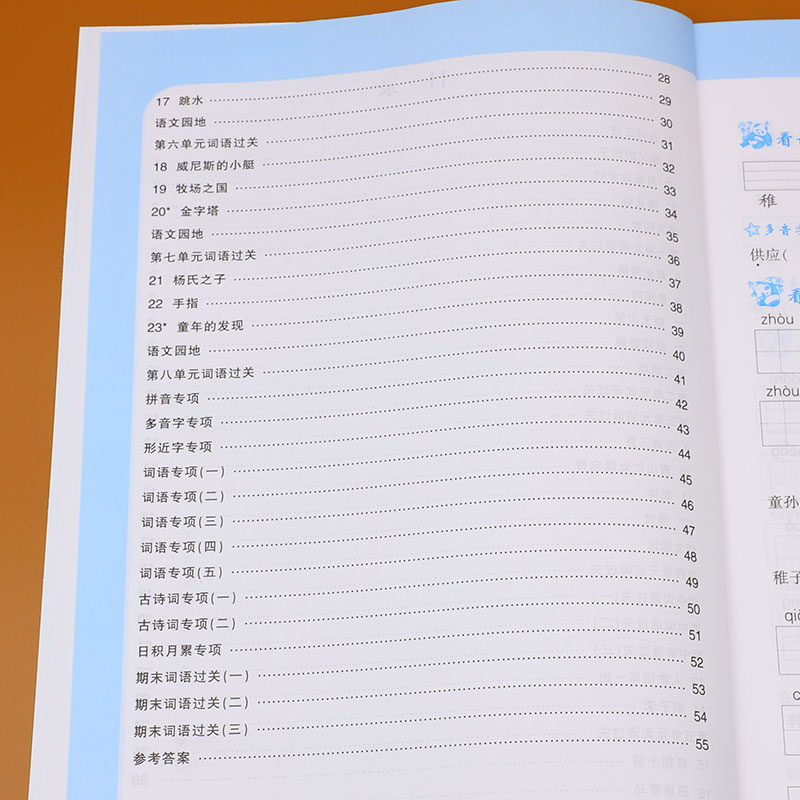 17 跳水 28
语文园地 29
第六单元词语过关 30
18 威尼斯的小艇 31
19 牧场之国 32
20* 金字塔 33
语文园地 34
第七单元词语过关 35
21 杨氏之子 36
22 手指 37
23* 童年的发现 38
语文园地 39
第八单元词语过关 40
拼音专项 41
多音字专项 42
形近字专项 43
词语专项(一) 44
词语专项(二) 45
词语专项(三) 46
词语专项(四) 47
词语专项(五) 48
古诗词专项(一) 49
古诗词专项(二) 50
日积月累专项 51
期末词语过关(一) 52
期末词语过关(二) 53
期末词语过关(三) 54
参考答案 55
看
稚
多音
供应(
看
zhòu
zhòu
童孙
稚子